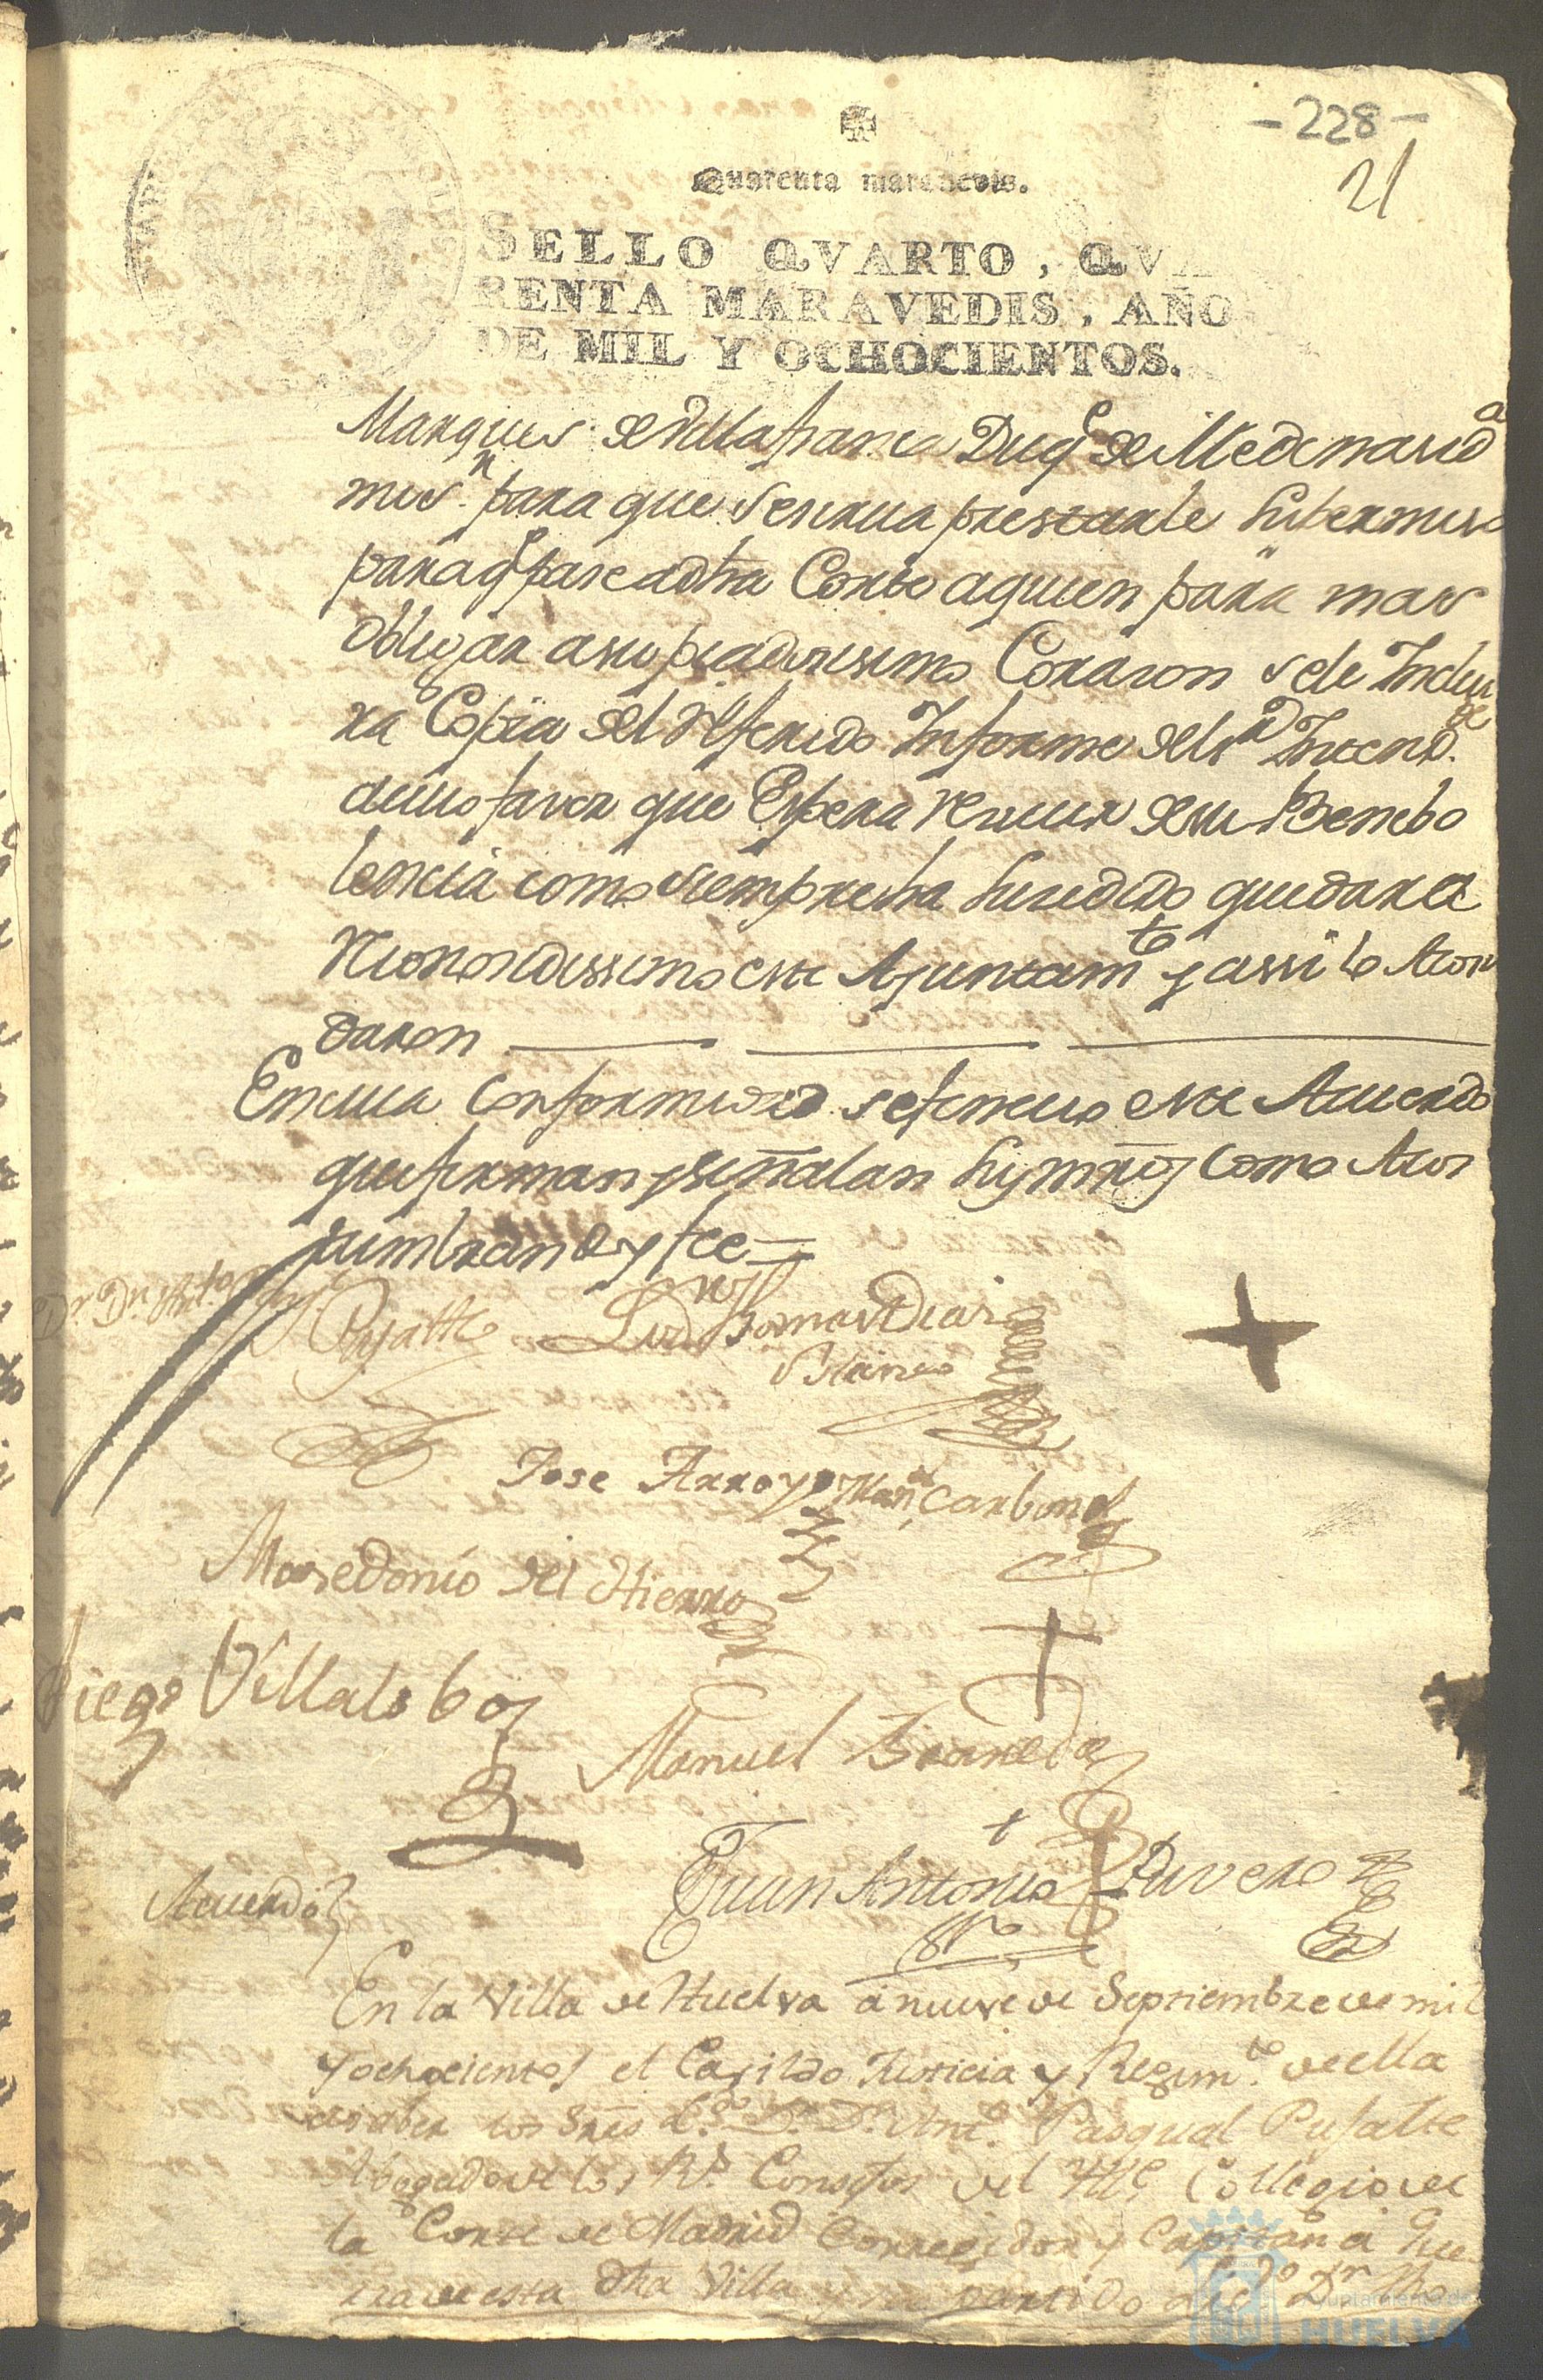 -228-
21
Quarenta maravedis.
SELLO QVARTO, QVA
RENTA MARAVEDIS, AÑO
DE MIL Y OCHOCIENTOS.
Marques de Villafranca Duq.e de Medinasid.a
para que se sirva presentarle
para q.e pase a dha Corte a quien para mas
obligar a su piadosisimo Corazon se le Inclui
ra Copia del referido Informe del Intend.te
cuio favor que Espera recivir de su Benebo
lencia como siempre ha sucedido quedara
reconocidissimo este Ayuntam.to y assi lo Acor
daron
En cuia conformidad se fenecio este Acuerdo
que firman y señalan sus mrds como Acos
tumbran doy fee =
Dr. Dn. Ant.o
Pujalte
Lizd.o Thomas Diaz
Blanco
Jose Arroyo
Man.l Carbonel
Masedonio del Hierro
Diego Villalobos
Manuel
Juan Antonio Rivero
Acuerdo
En la Villa de Huelva a nueve de Septiembre de mil
y ochocientos el Cavildo Justicia y Regim.to de ella
es a saber los Sres L.do D.n Ant.o Pasqual Pujalte
Abogado de los R.s Consejos del Ill.e Collegio de
la Corte de Madrid Corregidor y Capitan a Gue
rra de esta dha Villa y su partido Lic.do Dn Tho
Ayuntamiento de
HUELVA